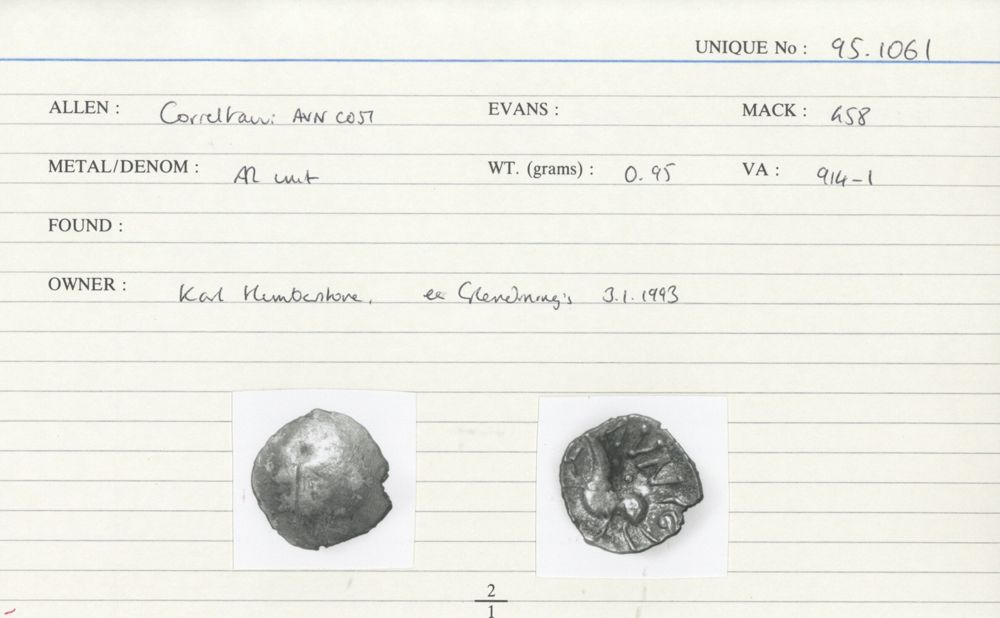 UNIQUE No : 95.1061
ALLEN : Corieltauvi AVN COST EVANS : MACK : 458
METAL/DENOM : AR unit WT. (grams) : 0.95 VA : 914-1
FOUND :
OWNER : Karl Humberstone, ex Glendining's 3.1.1993
2
1